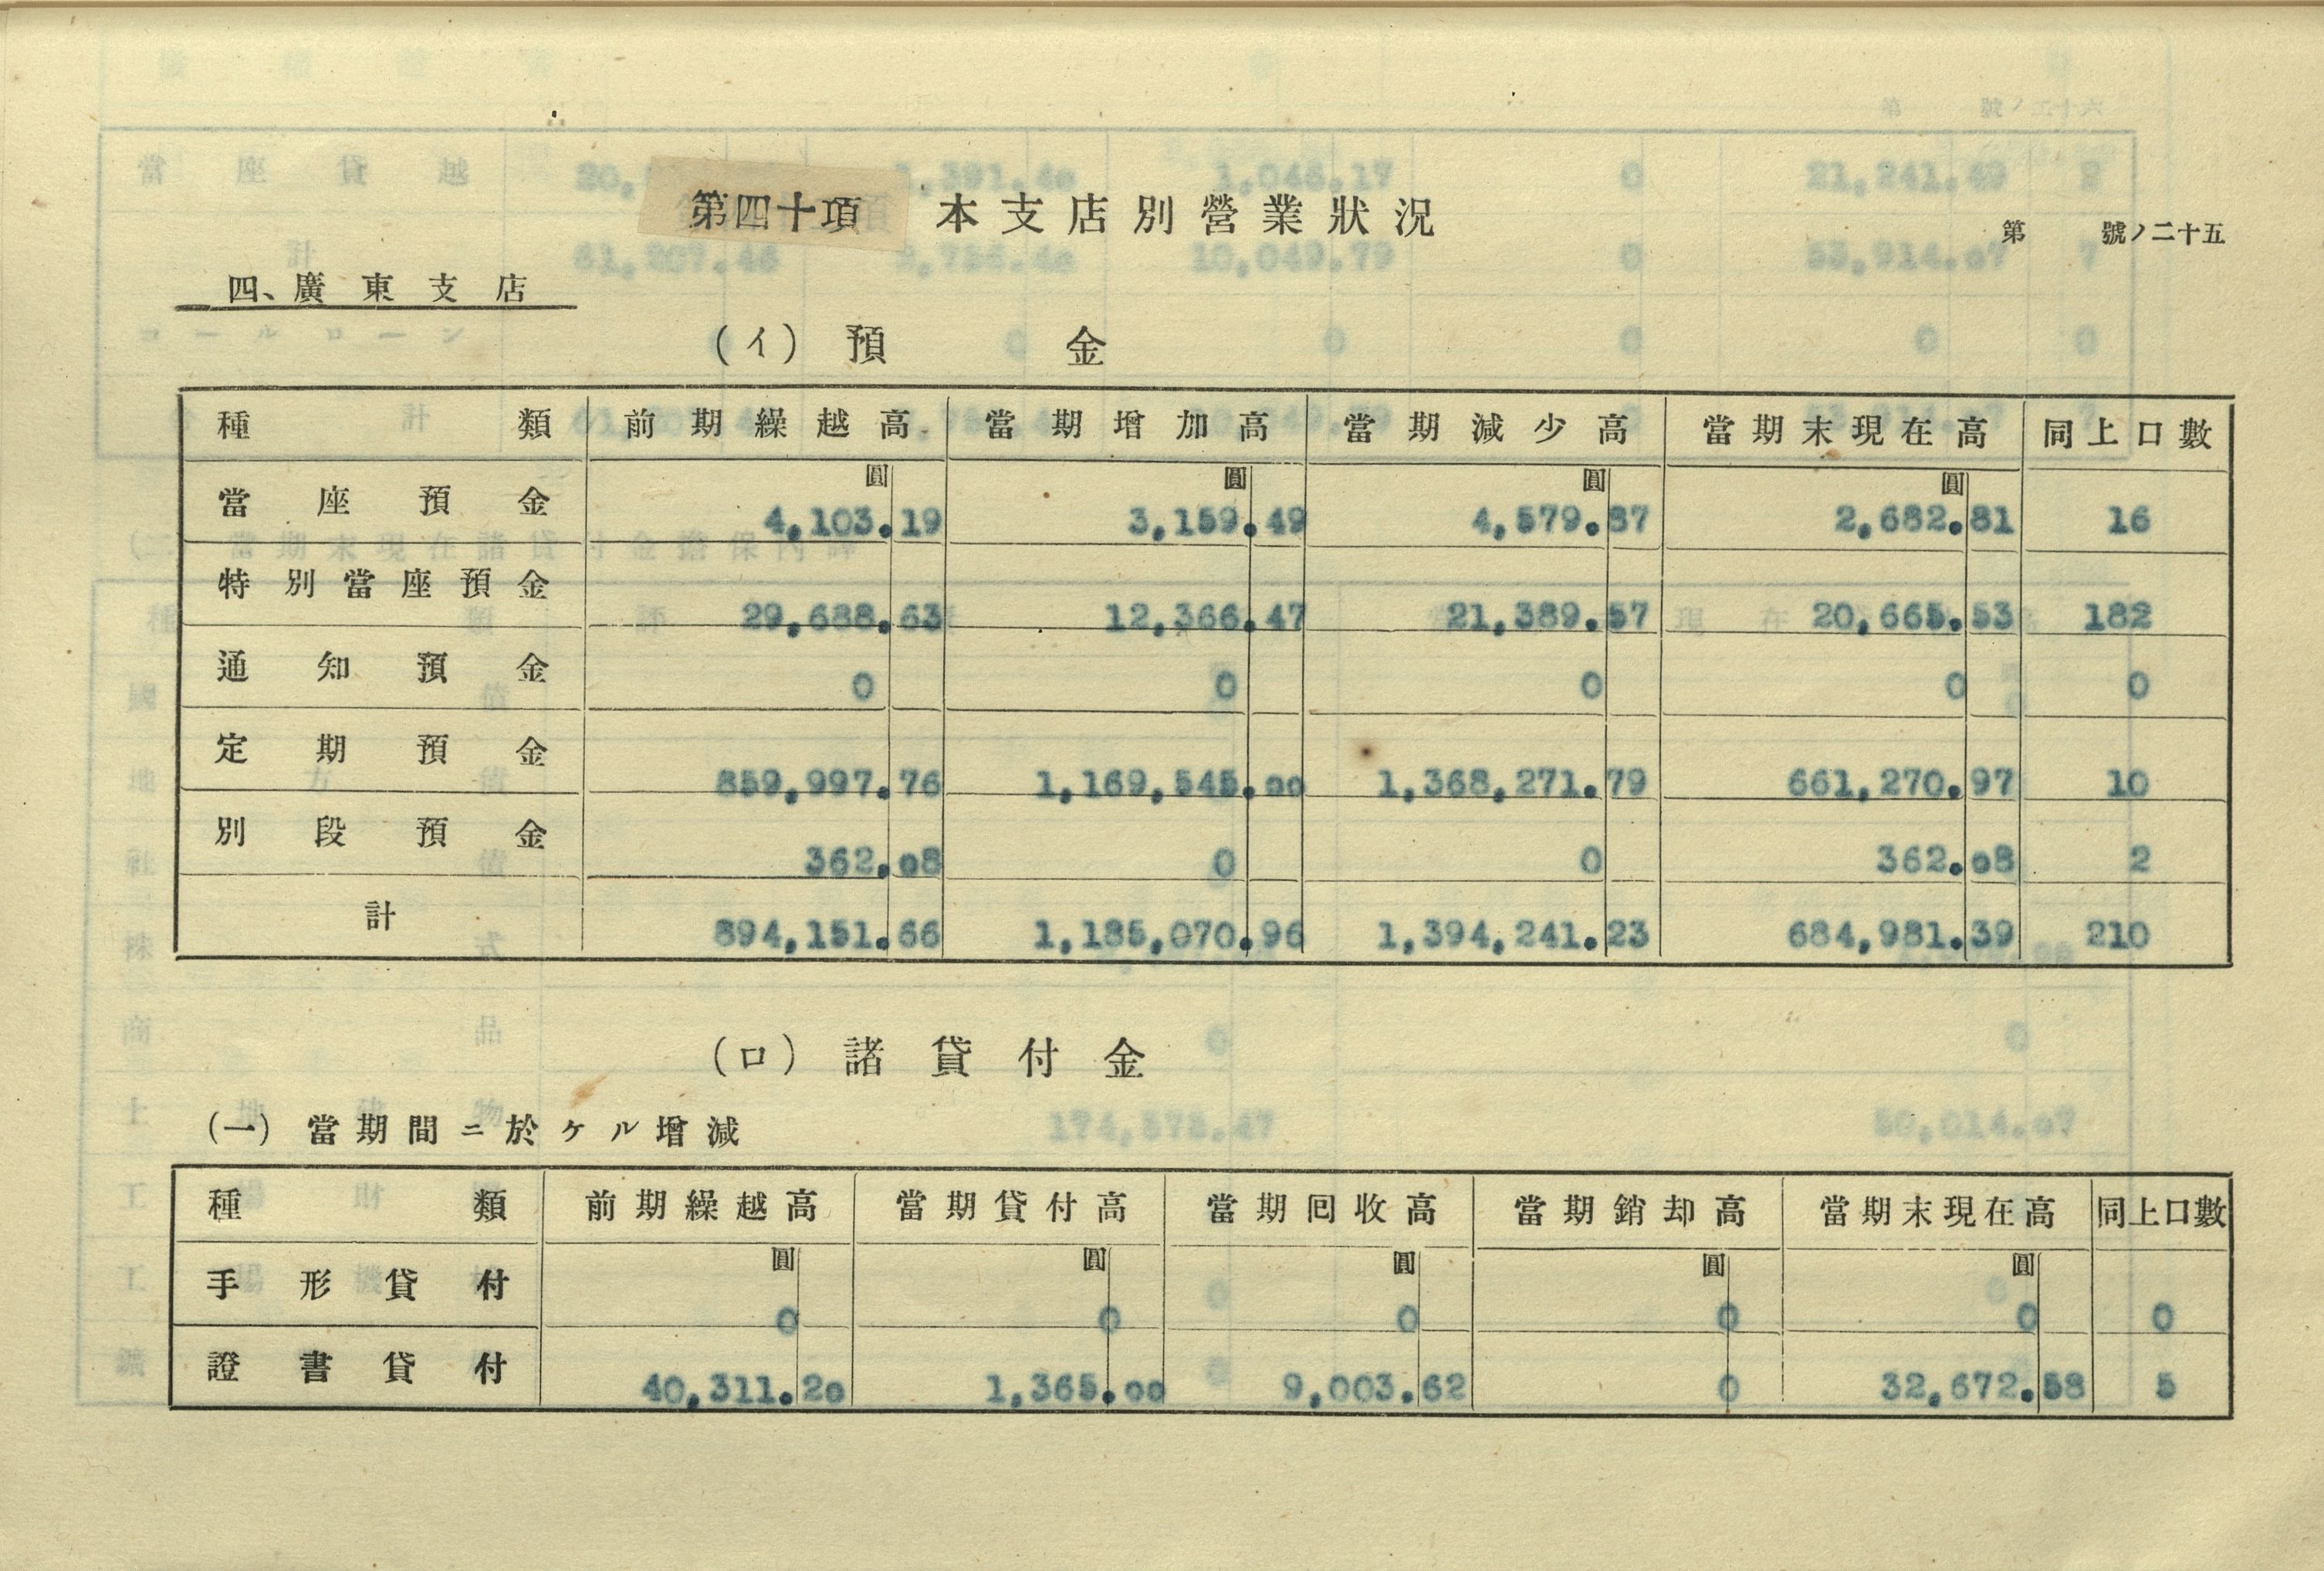 第四十項 本支店別營業狀況
第 號ノ二十五
四、廣東支店
(イ) 預金
種類 前期繰越高 當期增加高 當期減少高 當期末現在高 同上口數
圓 圓 圓 圓
當座預金 4,103.19 3,159.49 4,579.87 2,682.81 16
特別當座預金 29,688.63 12,366.47 21,389.57 20,665.53 182
通知預金 0 0 0 0 0
定期預金 859,997.76 1,169,545.00 1,368,271.79 661,270.97 10
別段預金 362.08 0 0 362.08 2
計 894,151.66 1,185,070.96 1,394,241.23 684,981.39 210
(ロ) 諸貸付金
(一) 當期間ニ於ケル增減
種類 前期繰越高 當期貸付高 當期囘收高 當期銷却高 當期末現在高 同上口數
圓 圓 圓 圓 圓
手形貸付 0 0 0 0 0 0
證書貸付 40,311.20 1,365.00 9,003.62 0 32,672.58 5